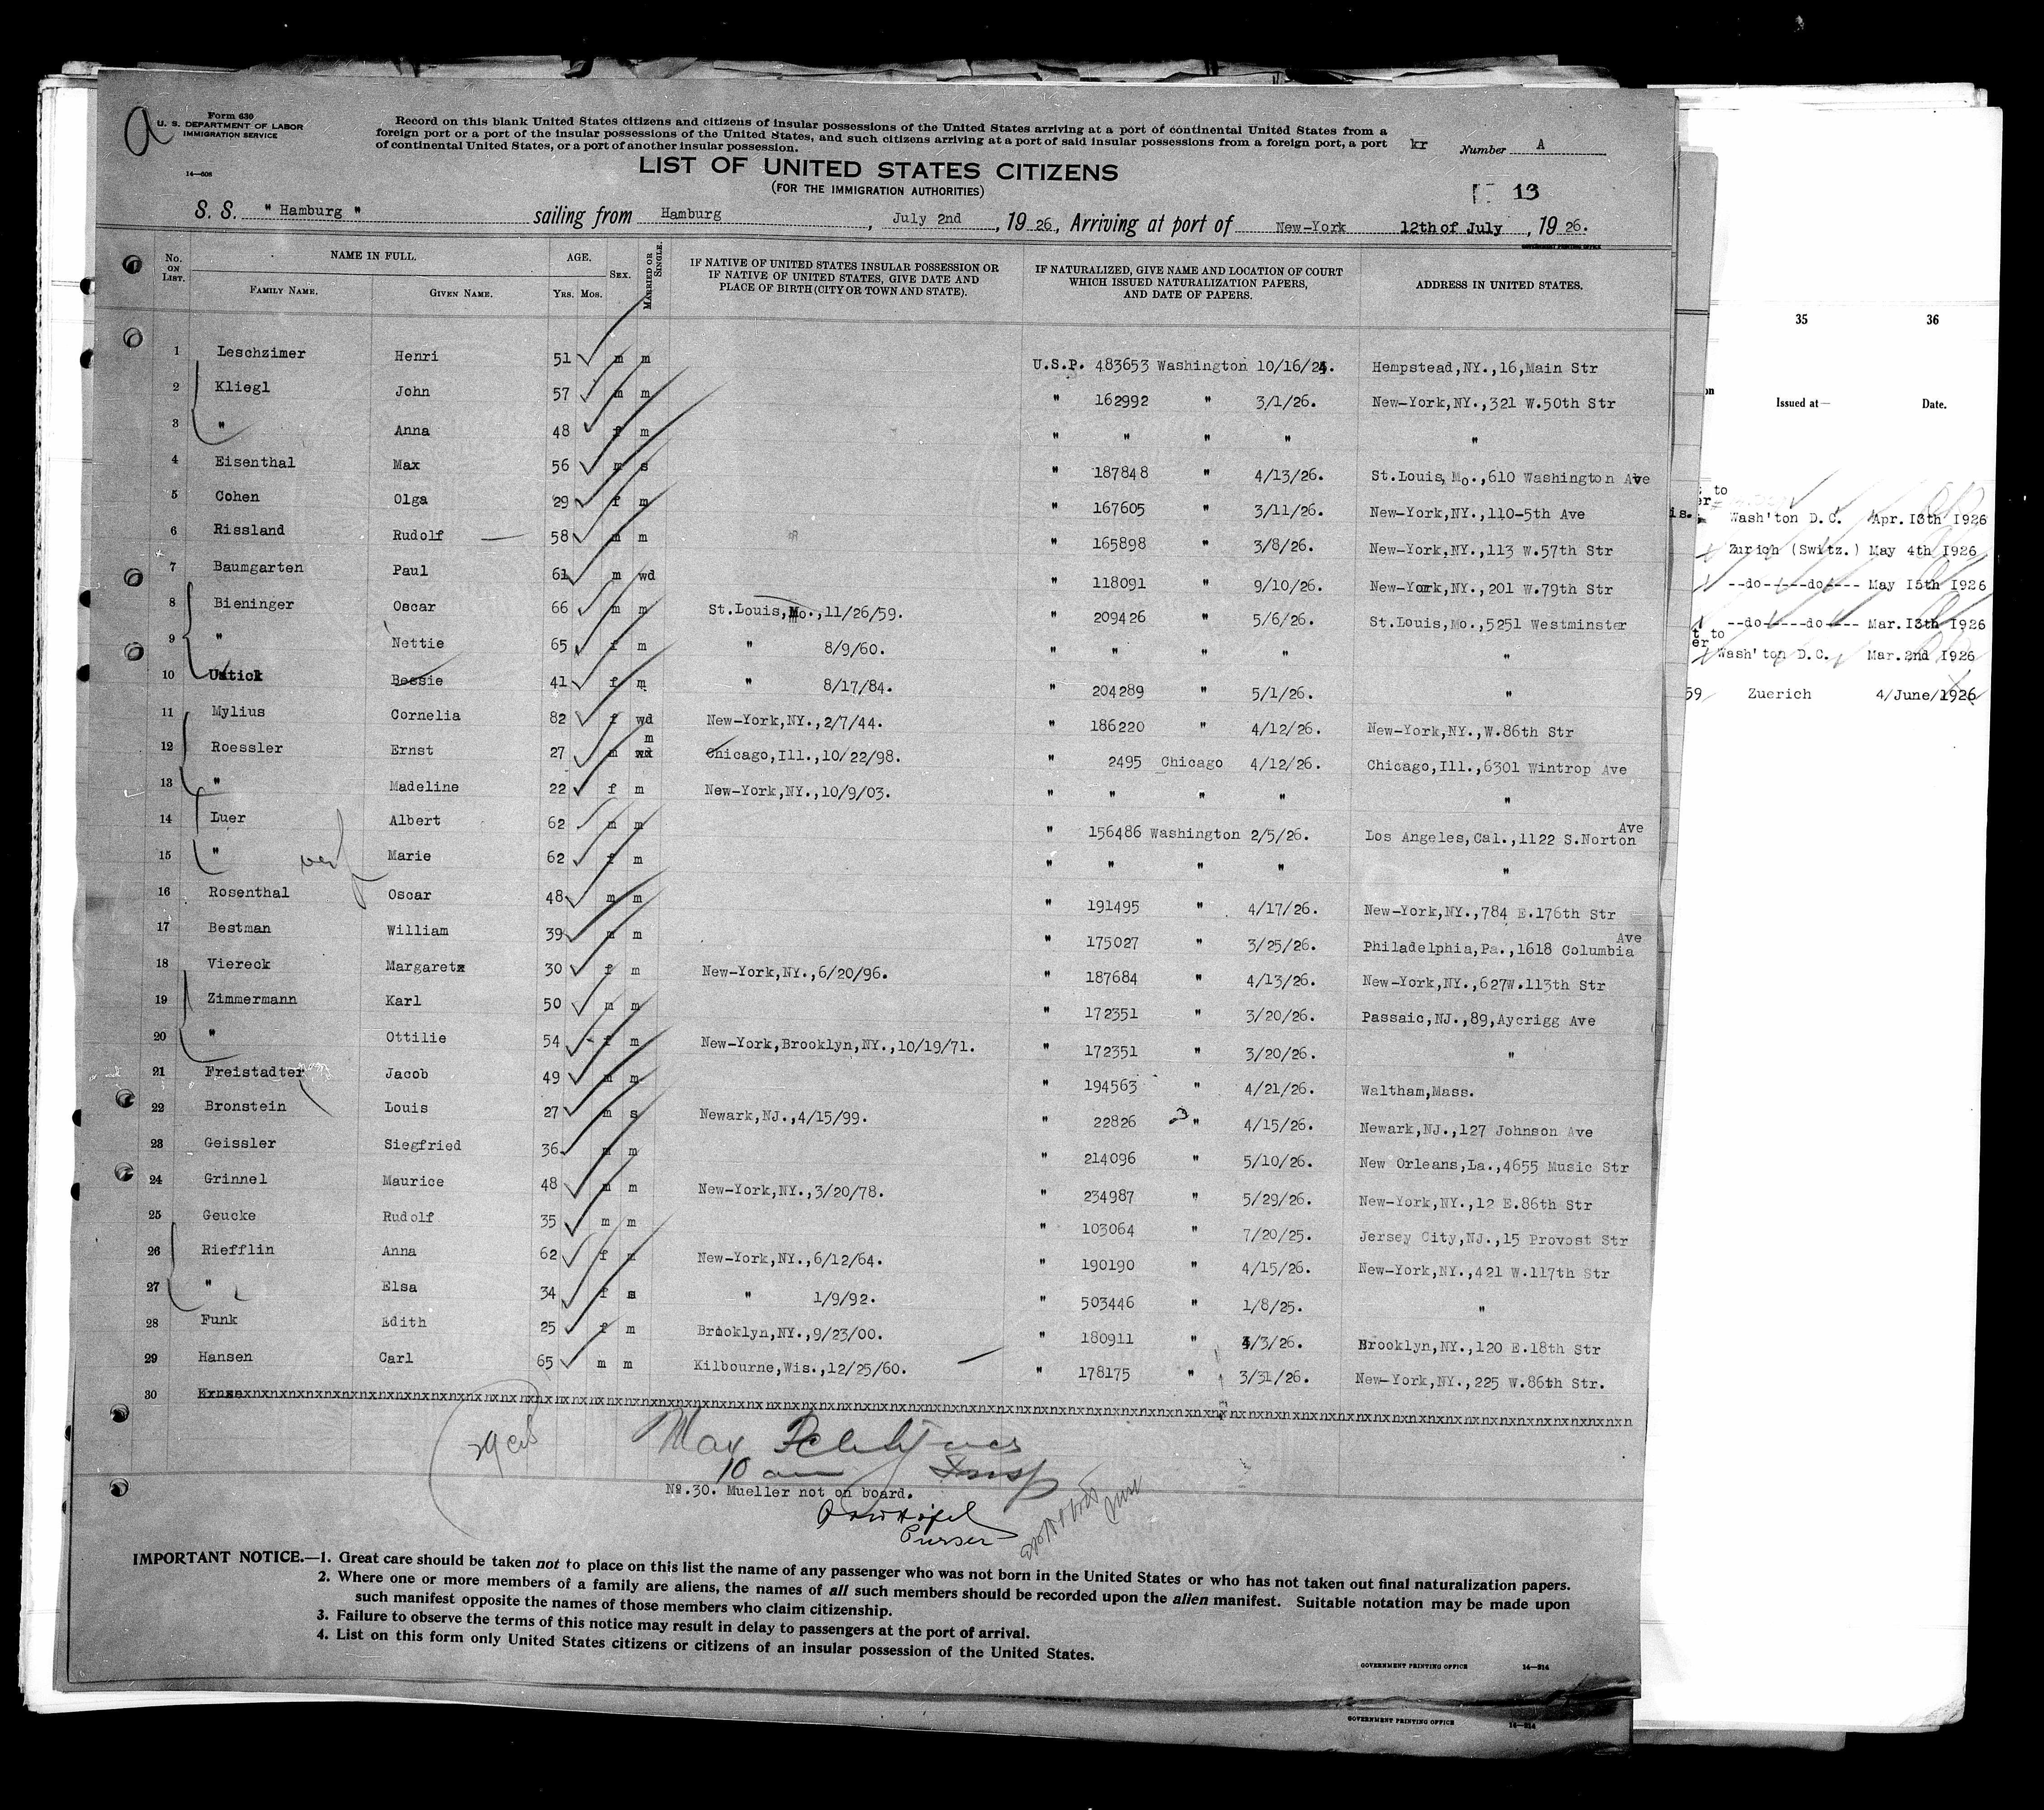 Form 630
U. S. DEPARTMENT OF LABOR
IMMIGRATION SERVICE
14—608
Record on this blank United States citizens and citizens of insular possessions of the United States arriving at a port of continental United States from a
foreign port or a port of the insular possessions of the United States, and such citizens arriving at a port of said insular possessions from a foreign port, a port
of continental United States, or a port of another insular possession.
kr Number A
LIST OF UNITED STATES CITIZENS
(FOR THE IMMIGRATION AUTHORITIES)
13
S. S. " Hamburg " sailing from Hamburg , July 2nd , 19 26, Arriving at port of New-York 12th of July , 19 26.
GOVERNMENT PRINTING OFFICE
No. ON LIST. NAME IN FULL. FAMILY NAME. GIVEN NAME. AGE. YRS. MOS. SEX. MARRIED OR SINGLE. IF NATIVE OF UNITED STATES INSULAR POSSESSION OR IF NATIVE OF UNITED STATES, GIVE DATE AND PLACE OF BIRTH (CITY OR TOWN AND STATE). IF NATURALIZED, GIVE NAME AND LOCATION OF COURT WHICH ISSUED NATURALIZATION PAPERS, AND DATE OF PAPERS. ADDRESS IN UNITED STATES.
1 Leschzimer Henri 51 m m U.S.P. 483653 Washington 10/16/24. Hempstead,NY.,16,Main Str
2 Kliegl John 57 m m " 162992 " 3/1/26. New-York,NY.,321 W.50th Str
3 " Anna 48 f m " " " " "
4 Eisenthal Max 56 m s " 187848 " 4/13/26. St.Louis,Mo.,610 Washington Ave
5 Cohen Olga 29 f m " 167605 " 3/11/26. New-York,NY.,110-5th Ave
6 Rissland Rudolf 58 m m " 165898 " 3/8/26. New-York,NY.,113 W.57th Str
7 Baumgarten Paul 61 m wd " 118091 " 9/10/26. New-York,NY.,201 W.79th Str
8 Bieninger Oscar 66 m m St.Louis,Mo.,11/26/59. " 209426 " 5/6/26. St.Louis,Mo.,5251 Westminster
9 " Nettie 65 f m " 8/9/60. " " " " "
10 Bessie 41 f m " 8/17/84. " 204289 " 5/1/26. "
11 Mylius Cornelia 82 f wd New-York,NY.,2/7/44. " 186220 " 4/12/26. New-York,NY.,W.86th Str
12 Roessler Ernst 27 m m wd Chicago,Ill.,10/22/98. " 2495 Chicago 4/12/26. Chicago,Ill.,6301 Wintrop Ave
13 " Madeline 22 f m New-York,NY.,10/9/03. " " " " "
14 Luer Albert 62 m m " 156486 Washington 2/5/26. Los Angeles,Cal.,1122 S.Norton Ave
15 " Marie 62 f m " " " " "
16 Rosenthal Oscar 48 m m " 191495 " 4/17/26. New-York,NY.,784 E.176th Str
17 Bestman William 39 m m " 175027 " 3/25/26. Philadelphia,Pa.,1618 Columbia Ave
18 Viereck Margaret 30 f m New-York,NY.,6/20/96. " 187684 " 4/13/26. New-York,NY.,627W.113th Str
19 Zimmermann Karl 50 m m " 172351 " 3/20/26. Passaic,NJ.,89,Aycrigg Ave
20 " Ottilie 54 f m New-York,Brooklyn,NY.,10/19/71. " 172351 " 3/20/26. "
21 Freistadter Jacob 49 m m " 194563 " 4/21/26. Waltham,Mass.
22 Bronstein Louis 27 m s Newark,NJ.,4/15/99. " 22826 " 4/15/26. Newark,NJ.,127 Johnson Ave
23 Geissler Siegfried 36 m m " 214096 " 5/10/26. New Orleans,La.,4655 Music Str
24 Grinnel Maurice 48 m m New-York,NY.,3/20/78. " 234987 " 5/29/26. New-York,NY.,12 E.86th Str
25 Geucke Rudolf 35 m m " 103064 " 7/20/25. Jersey City,NJ.,15 Provost Str
26 Riefflin Anna 62 f m New-York,NY.,6/12/64. " 190190 " 4/15/26. New-York,NY.,421 W.117th Str
27 " Elsa 34 f s " 1/9/92. " 503446 " 1/8/25. "
28 Funk Edith 25 f m Brooklyn,NY.,9/23/00. " 180911 " 4/3/26. Brooklyn,NY.,120 E.18th Str
29 Hansen Carl 65 m m Kilbourne,Wis.,12/25/60. " 178175 " 3/31/26. New-York,NY.,225 W.86th Str.
30
Max
10 am Insp
No.30. Mueller not on board.
Purser
IMPORTANT NOTICE.—1. Great care should be taken not to place on this list the name of any passenger who was not born in the United States or who has not taken out final naturalization papers.
2. Where one or more members of a family are aliens, the names of all such members should be recorded upon the alien manifest. Suitable notation may be made upon
such manifest opposite the names of those members who claim citizenship.
3. Failure to observe the terms of this notice may result in delay to passengers at the port of arrival.
4. List on this form only United States citizens or citizens of an insular possession of the United States.
GOVERNMENT PRINTING OFFICE 14—214
GOVERNMENT PRINTING OFFICE 14—214
35 36
Issued at— Date.
to
Wash'ton D.C. Apr. 13th 1926
Zurich (Switz.) May 4th 1926
--do-----do---- May 15th 1926
--do-----do---- Mar. 13th 1926
to
Wash'ton D.C. Mar. 2nd 1926
59 Zuerich 4/June/1926